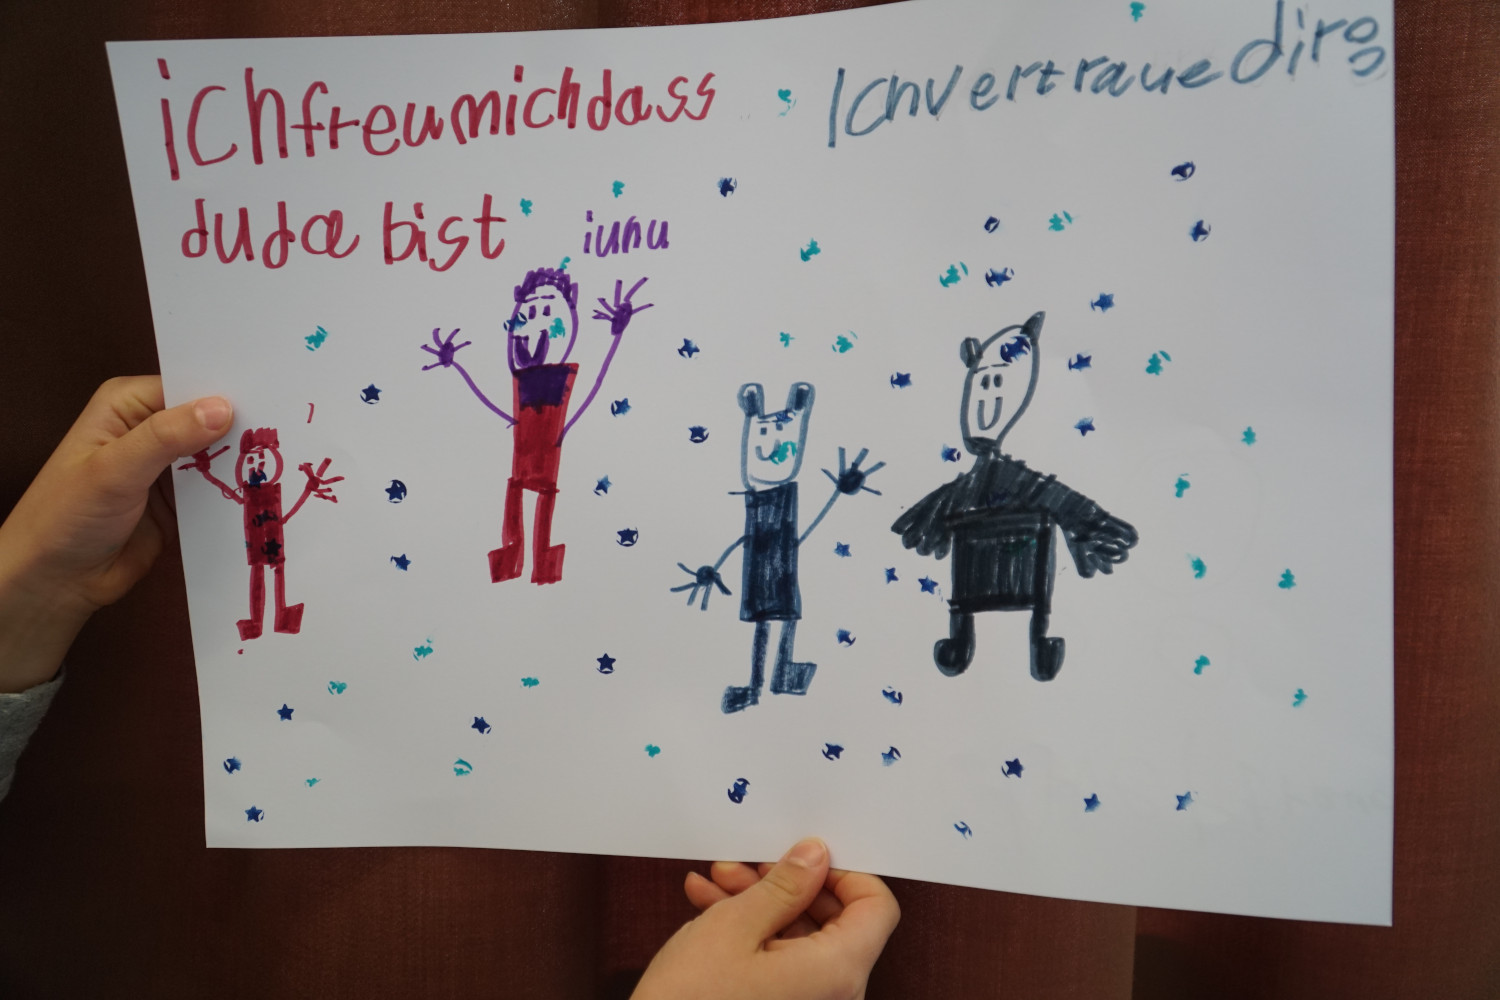 ichfreumichdass
dudabist
iunu
Ichvertrauedir